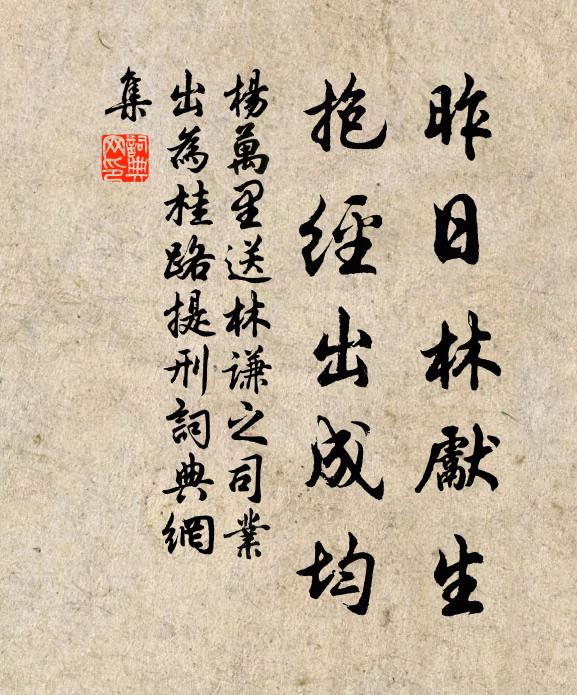 昨日林獻生
抱經出成均
楊萬里送林謙之司業
出為桂路提刑詞典網
集
詞典網印